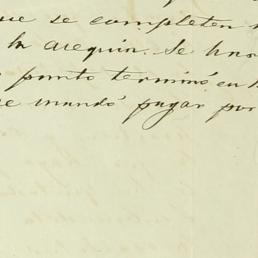 que se completen
la arequin. Se hno
punto terminó en
mandó pagar por